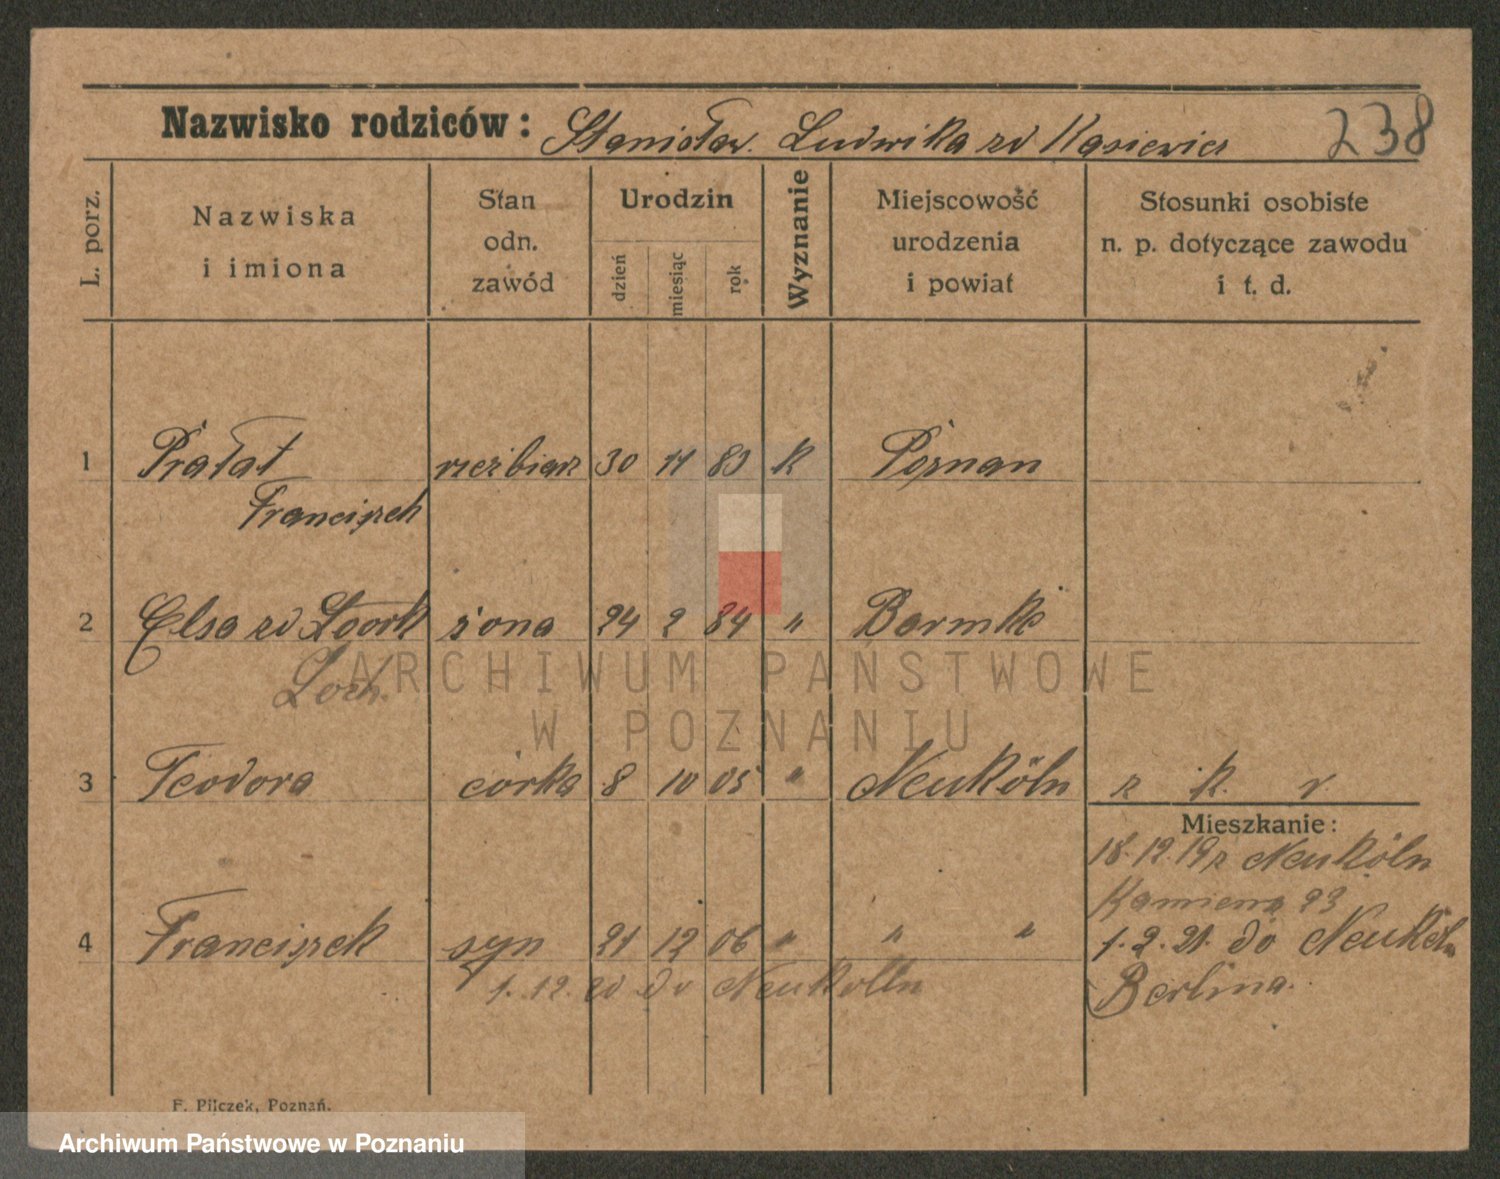 Nazwisko rodziców: Stanisław. Ludwika zd Kasiewicz 238
L. porz.
Nazwiska i imiona
Stan odn. zawód
Urodzin
dzień
miesiąc
rok
Wyznanie
Miejscowość urodzenia i powiat
Stosunki osobiste n. p. dotyczące zawodu i t. d.
1 Prałat rzeźbiarz 30 11 83 k Poznan
Franciszek
2 Elsa zd Stoork żona 24 2 84 " Barmke
Loch.
3 Teodora córka 8 10 05 " Neuköln z k. r
Mieszkanie:
18.12.19 z Neuköln
Kamienna 23
4 Franciszek syn 21 12 06 " " " 1.2.21. do Neuköln
1.12.20 do Neukölln
Berlina.
F. Pilczek, Poznań.
ARCHIWUM PAŃSTWOWE
W POZNANIU
Archiwum Państwowe w Poznaniu